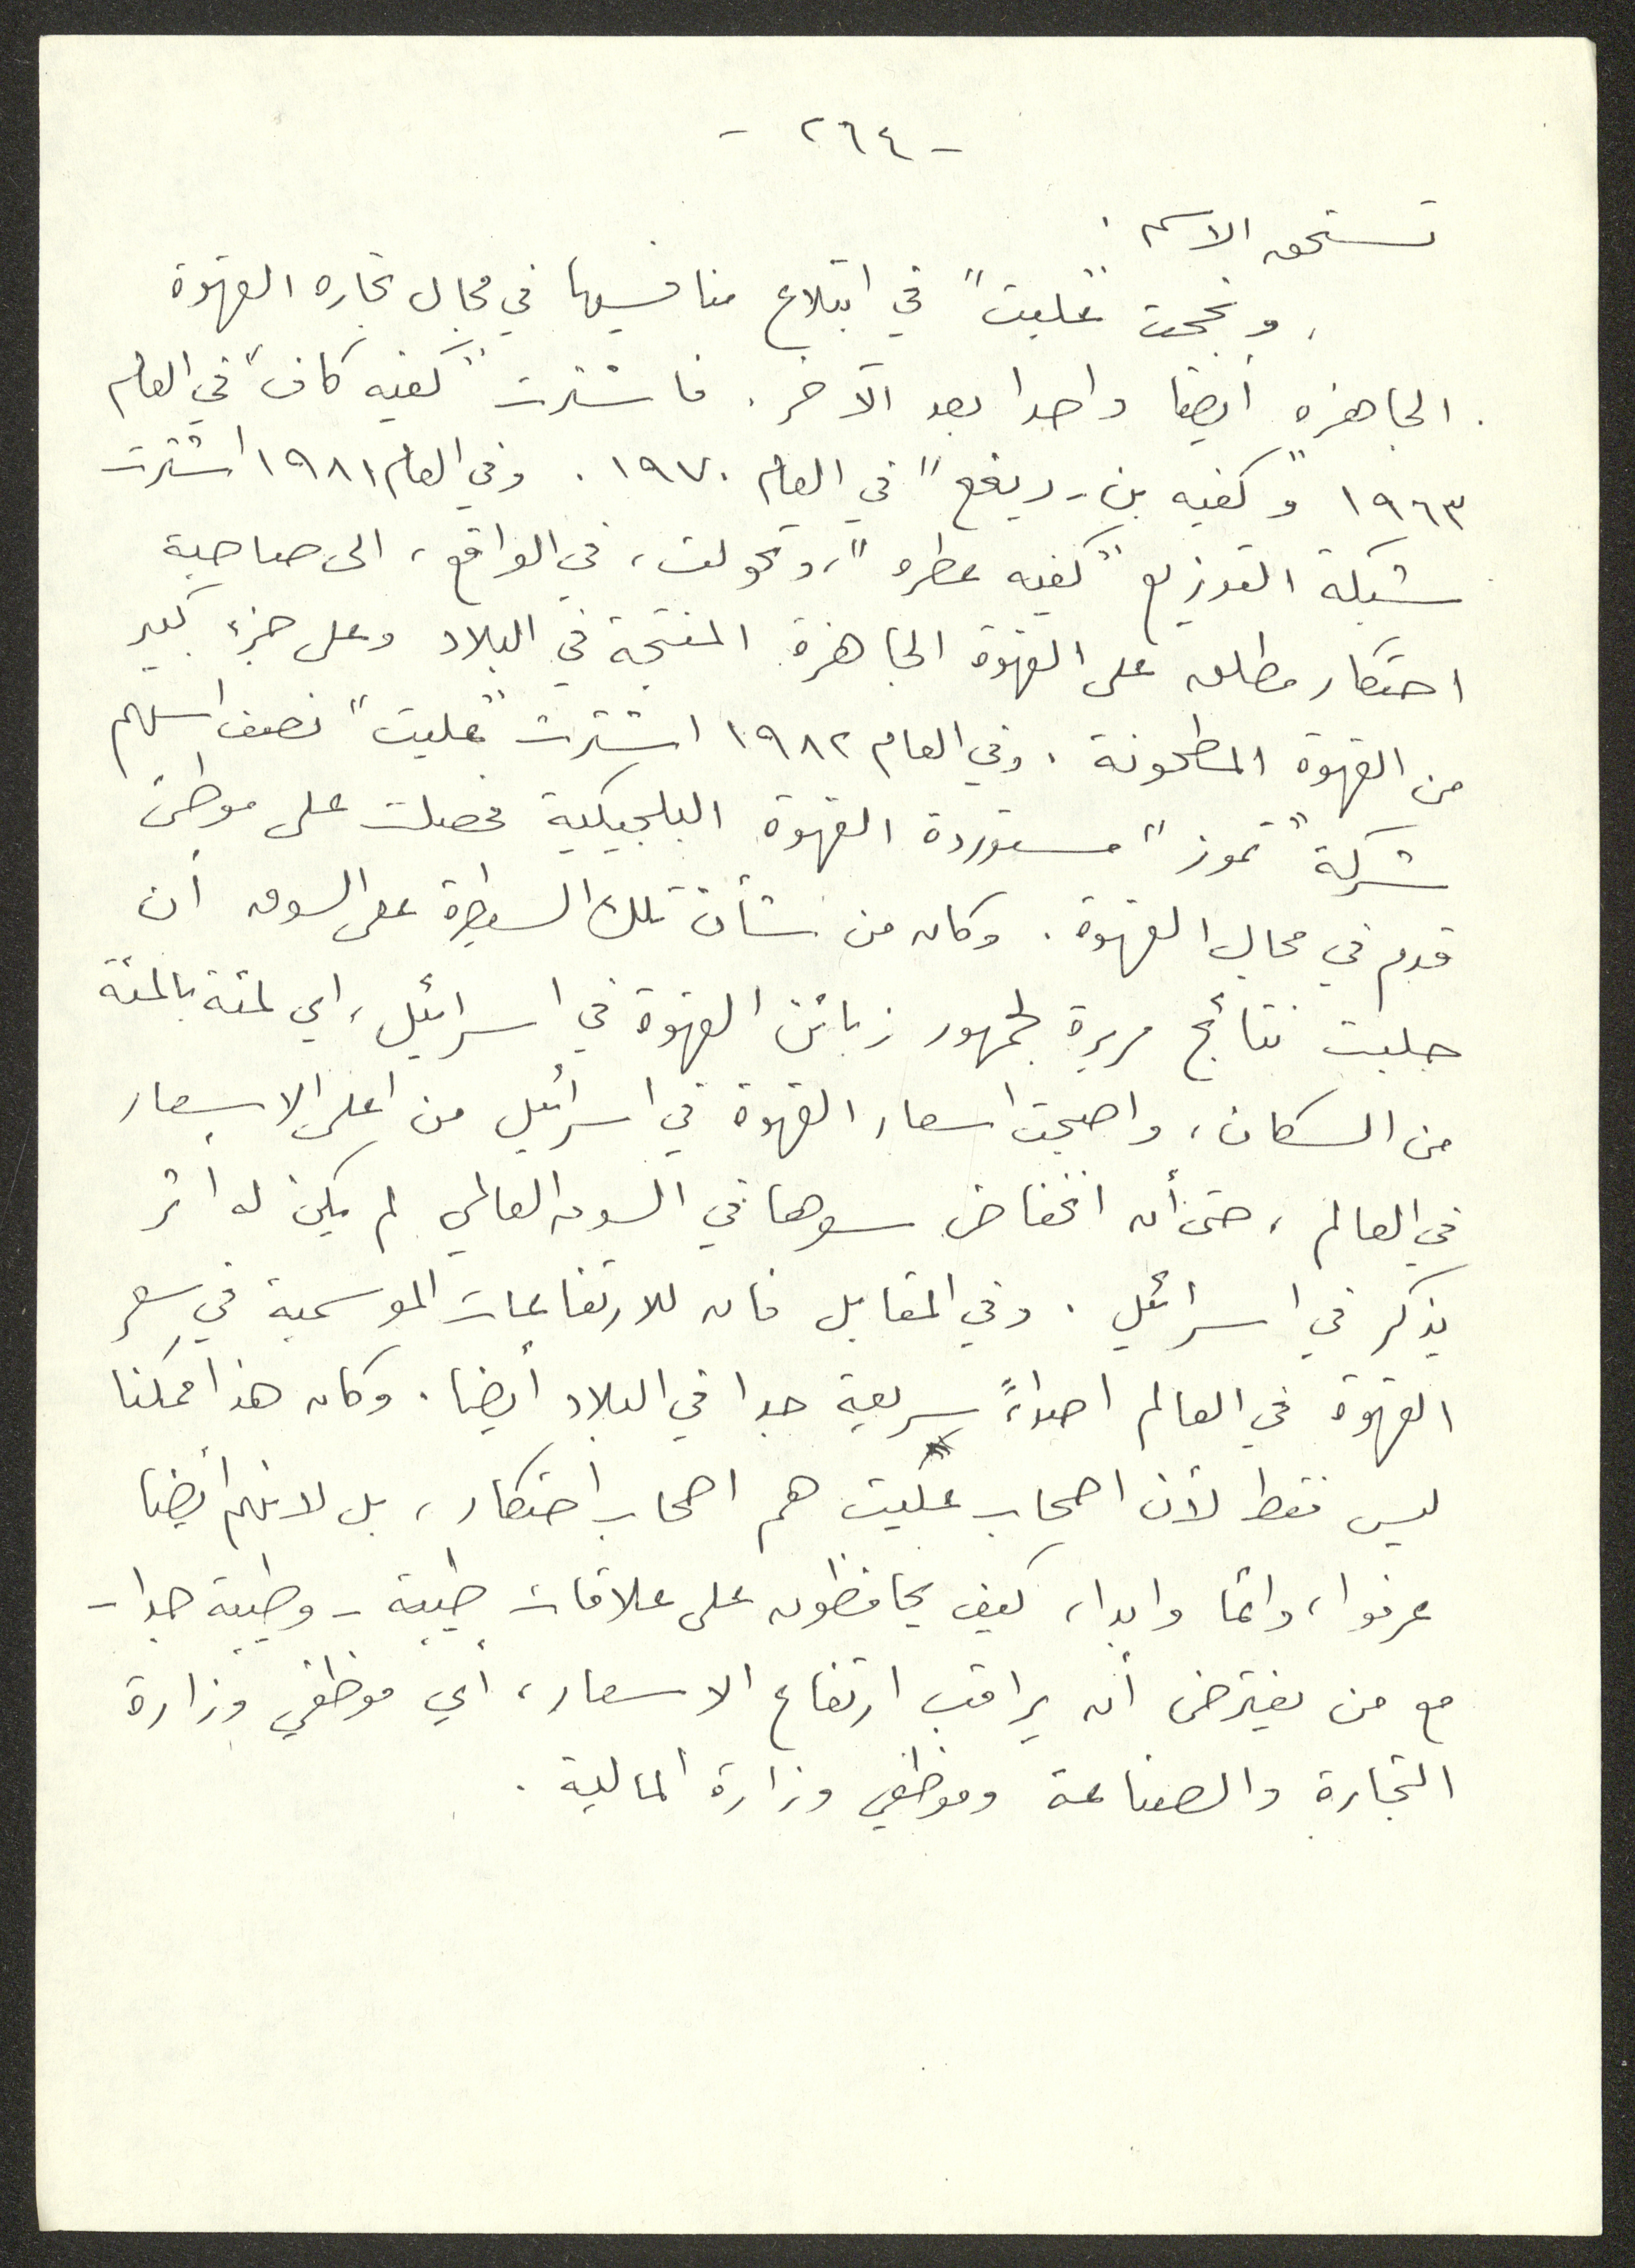 - ٢٦٤ -
تستحق الاسم .
ونجحت "عليت" في ابتلاع منافسيها في مجال تجاره القهوة
الجاهزه أيضا واحدا بعد الآخر . فاشترت "كفيه كاف" في العام
١٩٦٣ و "كفيه بن-ريفع" في العام ١٩٧٠ . وفي العام ١٩٨١ اشترت
شبكة التوزيع "كفيه عطره" ، وتحولت ، في الواقع ، الى صاحبة
احتكار مطلق على القهوة الجاهزة المنتجة في البلاد وعلى جزء كبير
من القهوة المطحونة . وفي العام ١٩٨٢ اشترت "عليت" نصف اسهم
شركة "تموز" مستوردة القهوة البلجيكية فحصلت على موطئ
قدم في مجال القهوة . وكان من شأن تلك السيطرة على السوق أن
جلبت نتائج مريرة لجمهور زبائن القهوة في اسرائيل ، اي لمئة بالمئة
من السكان ، واصبحت اسعار القهوة في اسرائيل من اعلى الاسعار
في العالم ، حتى أن انخفاض سعرها في السوق العالمي لم يكن له اثر
يذكر في اسرائيل . وفي المقابل فان للارتفاعات الموسمية في سعر
القهوة في العالم اصداءً سريعة جدا في البلاد أيضا . وكان هذا ممكنا
ليس فقط لأن اصحاب عليت هم اصحاب احتكار ، بل لانهم أيضا
عرفوا ، دائما وابدا ، كيف يحافظون على علاقات طيبة - وطيبة جدا -
مع من يفترض أن يراقب ارتفاع الاسعار ، أي موظفي وزارة
التجارة والصناعة وموظفي وزارة المالية .